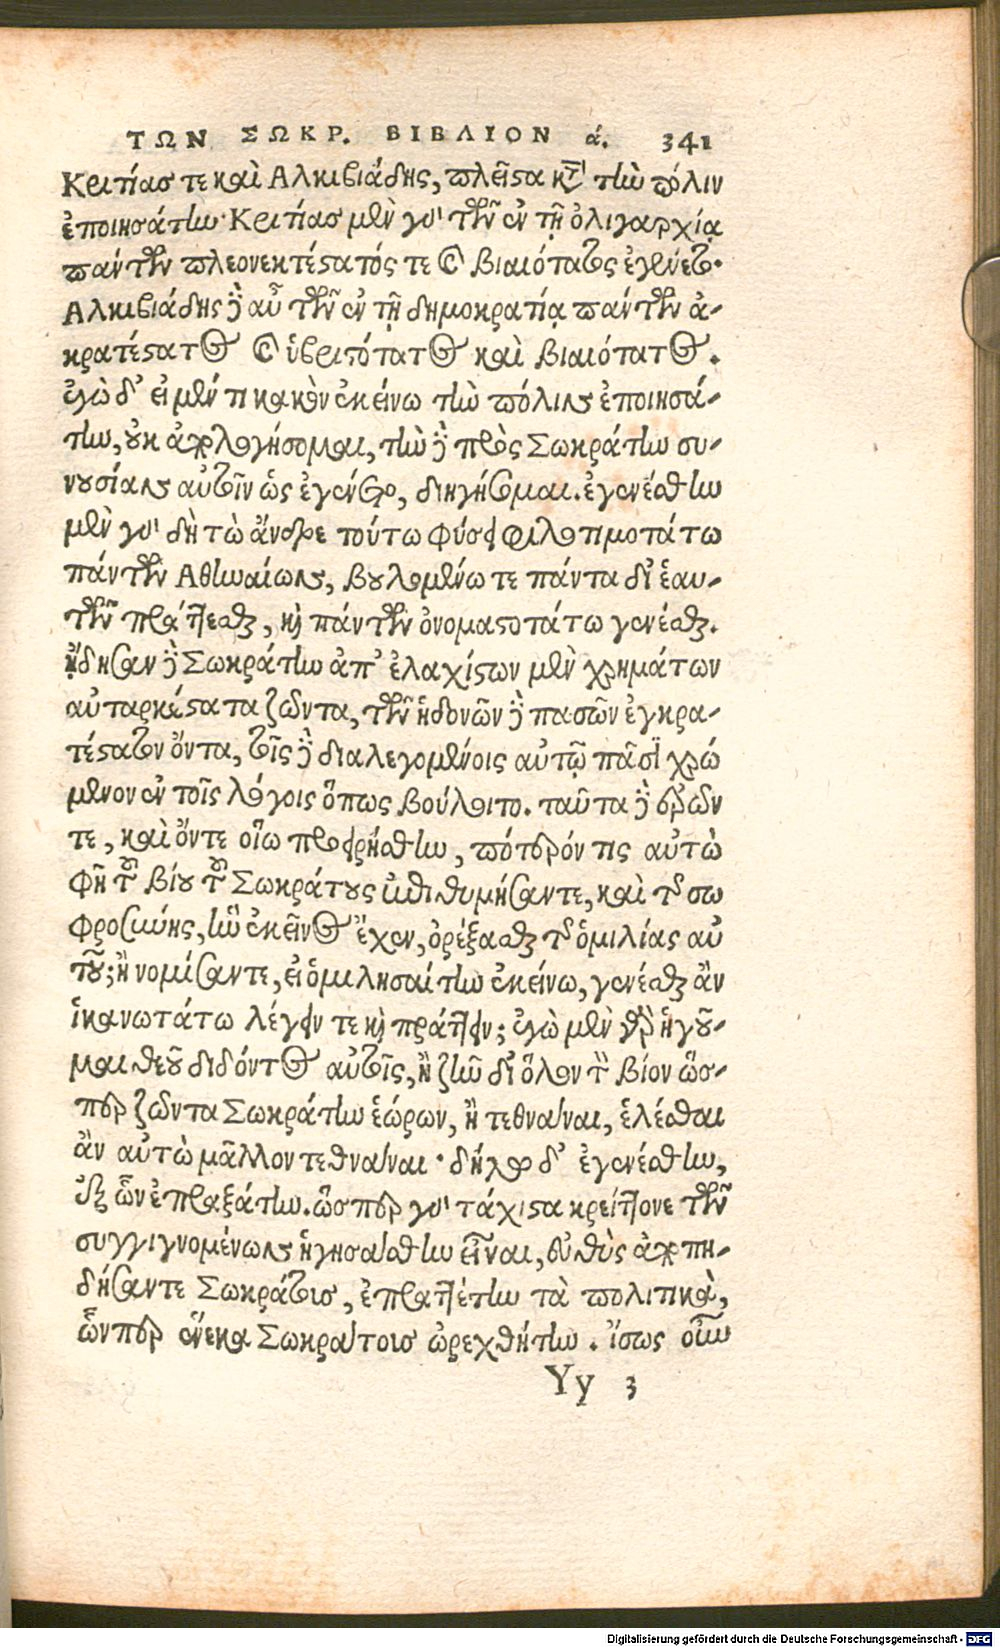 ΤΩΝ ΣΩΚΡ. ΒΙΒΛΙΟΝ ά. 341
Κριτίας τε καὶ Ἀλκιβιάδης, πλεῖστα κατὰ τὴν πόλιν
ἐποιησάτην· Κριτίας μὲν γὰρ τῶν ἐν τῇ ὀλιγαρχίᾳ
πάντων πλεονεκτέστατός τε καὶ βιαιότατος ἐγένετο·
Ἀλκιβιάδης δὲ αὖ τῶν ἐν τῇ δημοκρατίᾳ πάντων ἀ-
κρατέστατος καὶ ὑβριστότατος καὶ βιαιότατος.
ἐγὼ δ' εἰ μέν τι κακὸν ἐκείνω τὴν πόλιν ἐποιησά-
την, οὐκ ἀπολογήσομαι, τὴν δὲ πρὸς Σωκράτην συ-
νουσίαν αὐτοῖν ὡς ἐγένετο, διηγήσομαι. ἐγενέσθην
μὲν γὰρ δὴ τὼ ἄνδρε τούτω φύσει φιλοτιμοτάτω
πάντων Ἀθηναίων, βουλομένω τε πάντα δι' ἑαυ-
τῶν πράττεσθαι, καὶ πάντων ὀνομαστοτάτω γενέσθαι.
ᾔδησαν δὲ Σωκράτην ἀπ' ἐλαχίστων μὲν χρημάτων
αὐταρκέστατα ζῶντα, τῶν ἡδονῶν δὲ πασῶν ἐγκρα-
τέστατον ὄντα, τοῖς δὲ διαλεγομένοις αὐτῷ πᾶσι χρώ
μενον ἐν τοῖς λόγοις ὅπως βούλοιτο. ταῦτα δὲ ὁρῶν
τε, καὶ ὄντε οἵω προειρήσθην, πότερόν τις αὐτὼ
φῇ τοῦ βίου τοῦ Σωκράτους ἐπιθυμήσαντε, καὶ τῆς σω
φροσύνης, ἣν ἐκεῖνος εἶχεν, ὀρέξασθαι τῆς ὁμιλίας αὐ
τοῦ; ἢ νομίσαντε, εἰ ὁμιλησαίτην ἐκείνω, γενέσθαι ἂν
ἱκανωτάτω λέγειν τε καὶ πράττειν; ἐγὼ μὲν γὰρ ἡγοῦ-
μαι θεοῦ διδόντος αὐτοῖς, ἢ ζῆν δι' ὅλον τὸν βίον ὥσ-
περ ζῶντα Σωκράτην ἑώρων, ἢ τεθνάναι, ἑλέσθαι
ἂν αὐτὼ μᾶλλον τεθνάναι· δήλω δ' ἐγενέσθην,
ἐξ ὧν ἐπραξάτην. ὥσπερ γὰρ τάχιστα κρείττονε τῶν
συγγιγνομένων ἡγησάσθην εἶναι, εὐθὺς ἀποπη-
δήσαντε Σωκράτους, ἐπραττέτην τὰ πολιτικὰ,
ὧνπερ ἕνεκα Σωκράτοις ὠρεχθήτην. ἴσως οὖν
Yy 3
Digitalisierung gefördert durch die Deutsche Forschungsgemeinschaft - DFG